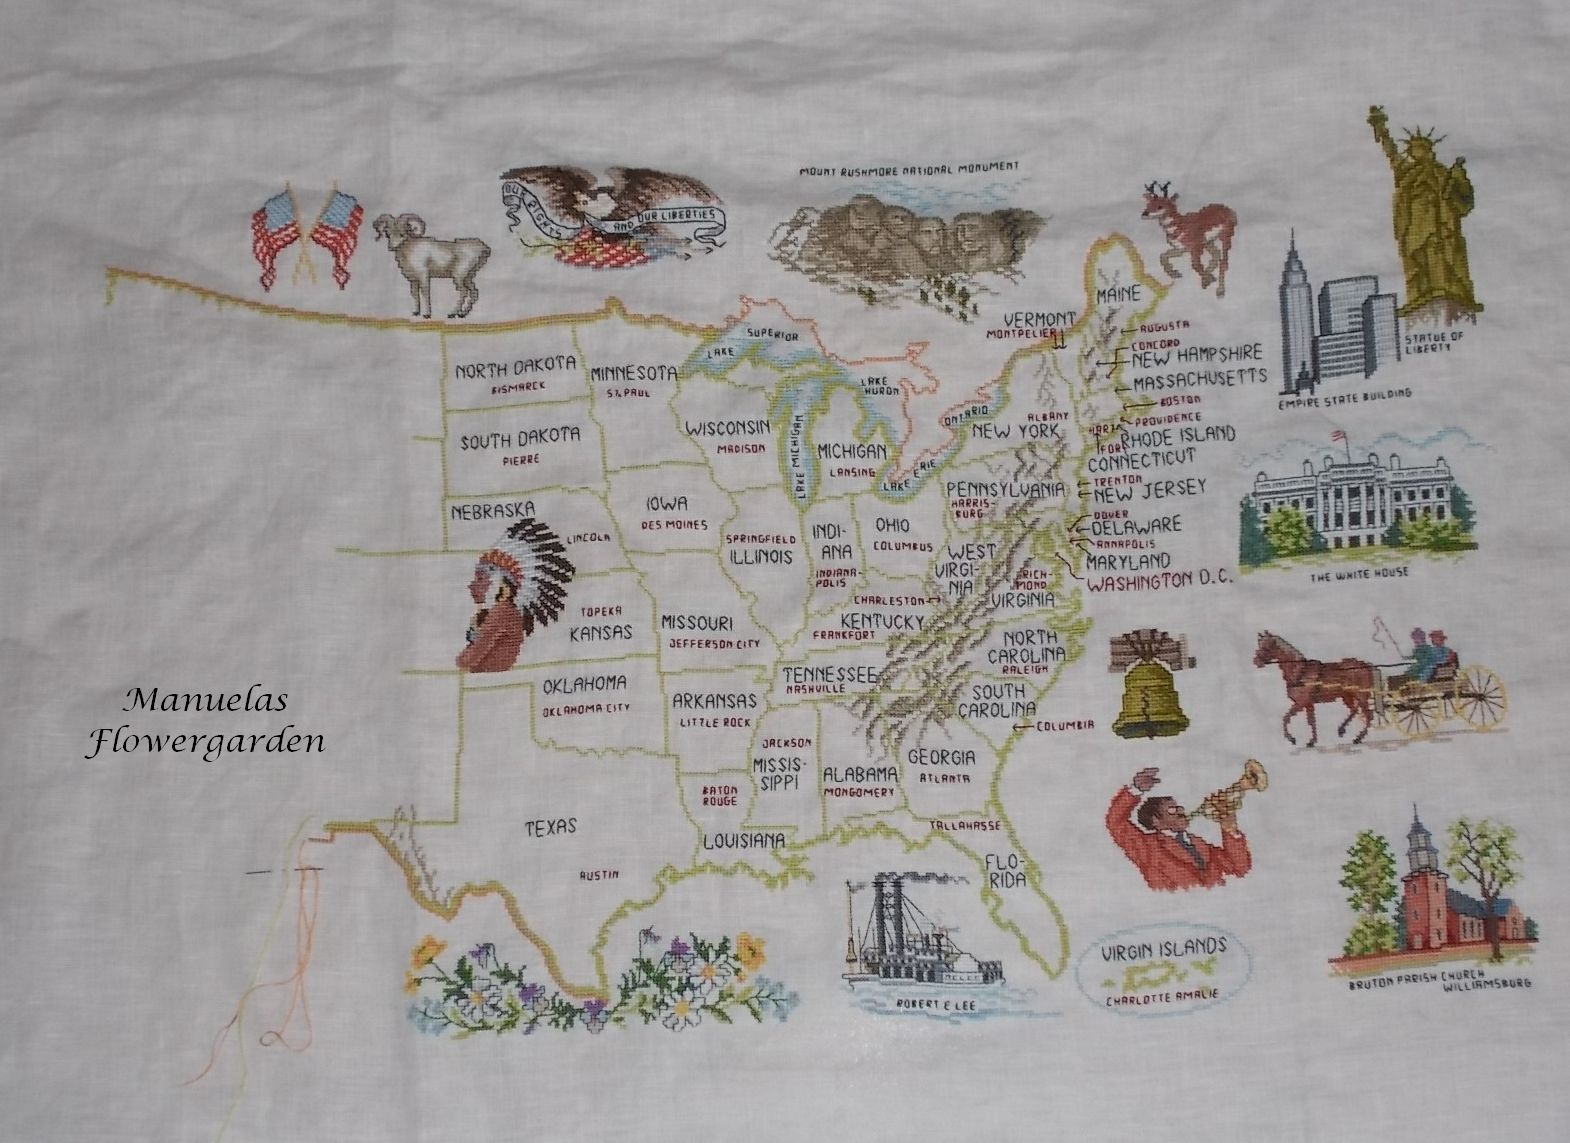 OUR RIGHTS
AND OUR LIBERTIES
MOUNT RUSHMORE NATIONAL MONUMENT
MAINE
VERMONT
MONTPELIER
AUGUSTA
CONCORD
NEW HAMPSHIRE
MASSACHUSETTS
BOSTON
PROVIDENCE
HART-
FORD
RHODE ISLAND
CONNECTICUT
STATUE OF
LIBERTY
EMPIRE STATE BUILDING
LAKE
SUPERIOR
NORTH DAKOTA
BISMARCK
MINNESOTA
ST. PAUL
LAKE
HURON
ONTARIO
ALBANY
NEW YORK
SOUTH DAKOTA
PIERRE
WISCONSIN
MADISON
LAKE MICHIGAN
MICHIGAN
LANSING
LAKE ERIE
PENNSYLVANIA
HARRIS-
BURG
TRENTON
NEW JERSEY
DOVER
DELAWARE
ANNAPOLIS
MARYLAND
WASHINGTON D.C.
THE WHITE HOUSE
NEBRASKA
LINCOLN
IOWA
DES MOINES
SPRINGFIELD
ILLINOIS
INDI-
ANA
INDIANA-
POLIS
OHIO
COLUMBUS
WEST
VIRGI-
NIA
CHARLESTON
RICH-
MOND
VIRGINIA
TOPEKA
KANSAS
MISSOURI
JEFFERSON CITY
KENTUCKY
FRANKFORT
NORTH
CAROLINA
RALEIGH
OKLAHOMA
OKLAHOMA CITY
ARKANSAS
LITTLE ROCK
TENNESSEE
NASHVILLE
SOUTH
CAROLINA
COLUMBIA
Manuelas
Flowergarden
JACKSON
MISSIS-
SIPPI
ALABAMA
MONTGOMERY
GEORGIA
ATLANTA
TEXAS
AUSTIN
BATON
ROUGE
LOUISIANA
TALLAHASSE
FLO-
RIDA
ROBERT E LEE
VIRGIN ISLANDS
CHARLOTTE AMALIE
BRUTON PARISH CHURCH
WILLIAMSBURG